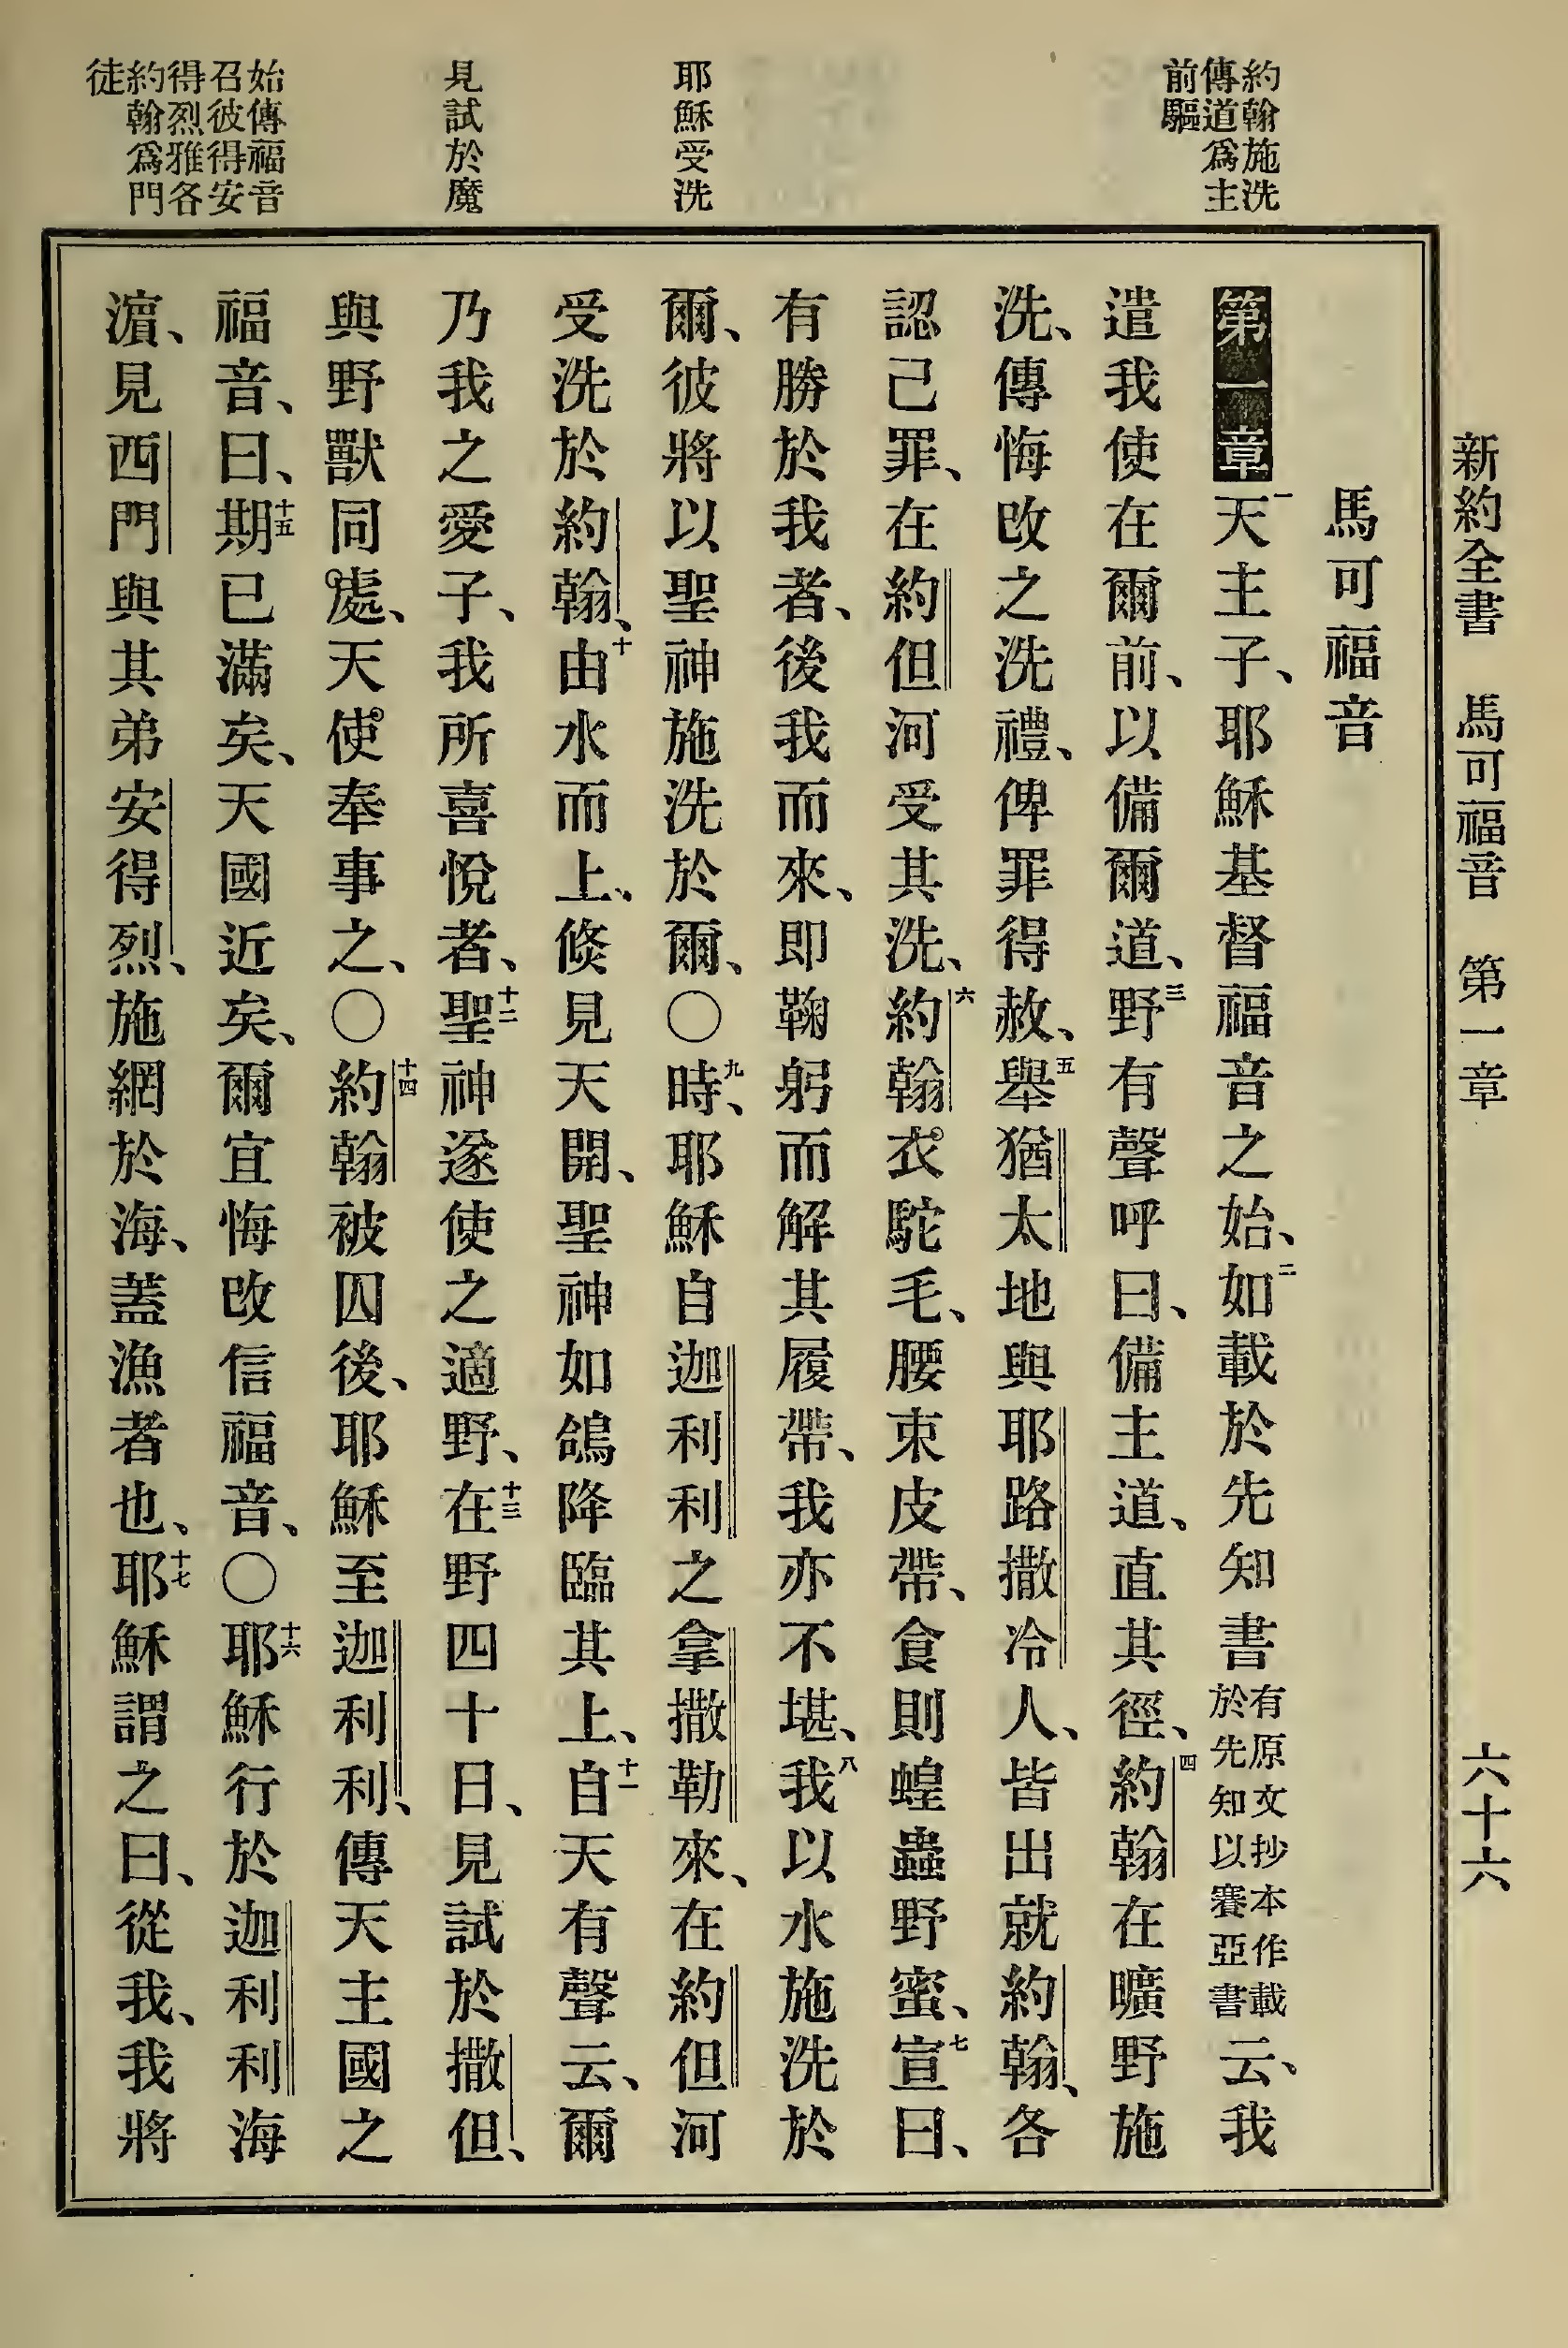 新約全書 馬可福音 第一章 六十六
約翰施洗
傳道爲主
前驅
耶穌受洗
見試於魔
始傳福音
召彼得安
得烈雅各
約翰爲門
徒
馬可福音
第一章一天主子、耶穌基督福音之始、二如載於先知書有原文抄本作載於先知以賽亞書云、我
遣我使在爾前、以備爾道、三野有聲呼曰、備主道、直其徑、四約翰在曠野施
洗、傳悔改之洗禮、俾罪得赦、五舉猶太地與耶路撒冷人、皆出就約翰、各
認己罪、在約但河受其洗、六約翰衣駝毛、腰束皮帶、食則蝗蟲野蜜、七宣曰、
有勝於我者、後我而來、即鞠躬而解其履帶、我亦不堪、八我以水施洗於
爾、彼將以聖神施洗於爾、〇九時、耶穌自迦利利之拿撒勒來、在約但河
受洗於約翰、十由水而上、倐見天開、聖神如鴿降臨其上、十一自天有聲云、爾
乃我之愛子、我所喜悅者、十二聖神遂使之適野、十三在野四十日、見試於撒但、
與野獸同處、天使奉事之、〇十四約翰被囚後、耶穌至迦利利、傳天主國之
福音、曰、十五期已滿矣、天國近矣、爾宜悔改信福音、〇十六耶穌行於迦利利海
濵、見西門與其弟安得烈、施網於海、蓋漁者也、十七耶穌謂之曰、從我、我將